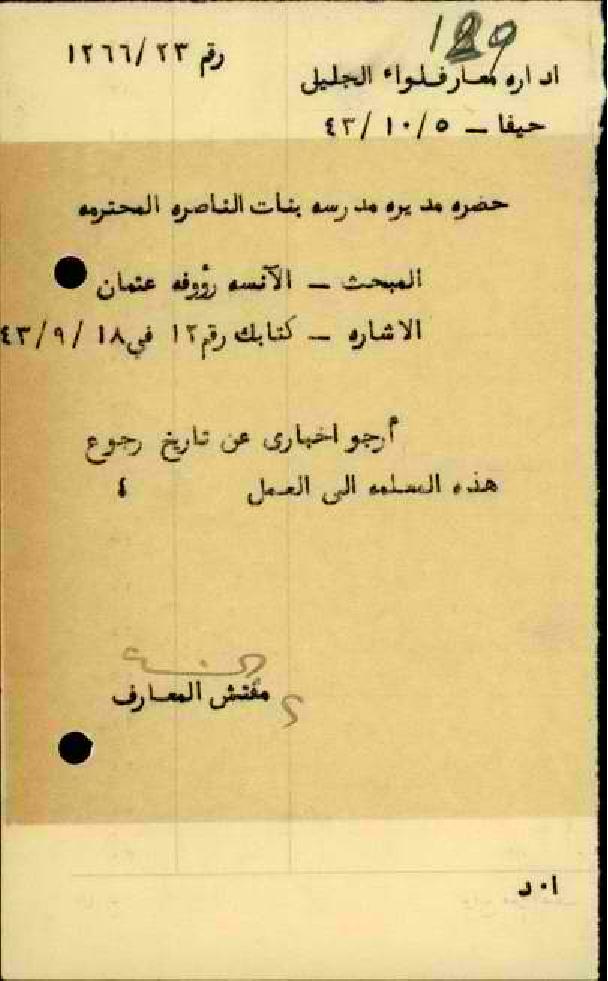 129
رقم ١٢٦٦/٢٣
اداره معارف لواء الجليل
حيفا – ٤٣/١٠/٥
حضره مديره مدرسه بنات الناصره المحترمه
المبحث – الآنسه رؤوفه عثمان
الاشاره – كتابك رقم ١٢ في ٤٣/٩/١٨
أرجو اخبارى عن تاريخ رجوع
هذه المعلمه الى العمل ٤
مفتش المعارف
ا٠د